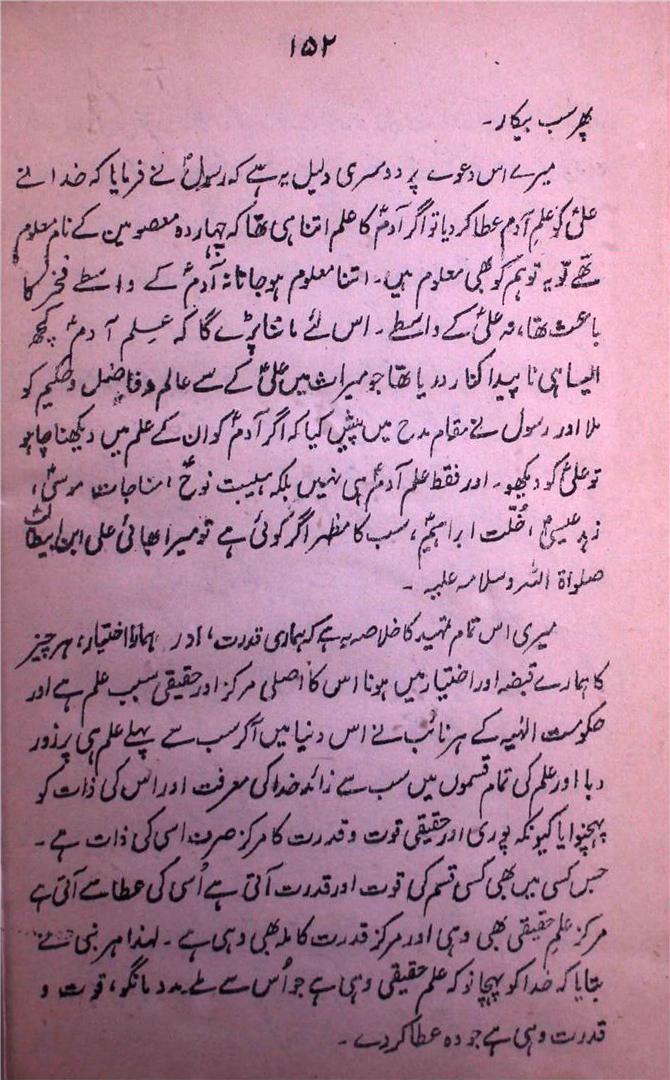 ۱۵۲
پھر سب بیکار۔
میرے اس دعوے پر دوسری دلیل یہ ہے کہ رسولؐ نے فرمایا کہ خدا نے
علیؑ کو علمِ آدم عطا کر دیا تو اگر آدمؑ کا علم اتنا ہی تھا کہ چہاردہ معصومین کے نام معلوم
تھے تو یہ تو ہم کو بھی معلوم ہیں۔ اتنا معلوم ہو جانا نہ آدمؑ کے واسطے فخر کا
باعث تھا، نہ علیؑ کے واسطے۔ اس لئے ماننا پڑے گا کہ علم آدمؑ کچھ
ایسا ہی ناپیدا کنار دریا تھا جو میراث میں علیؑ کے سے عالم و فاضل و حکیم کو
ملا اور رسول نے مقام مدح میں پیش کیا کہ اگر آدمؑ کو ان کے علم میں دیکھنا چاہو
تو علیؑ کو دیکھو۔ اور فقط علم آدمؑ ہی نہیں بلکہ ہیبت نوحؑ، مناجات موسیٰؑ،
زہد عیسیٰؑ، خُلّت ابراہیمؑ، سب کا مظہر اگر کوئی ہے تو میرا بھائی علی ابن ابیطالب
صلواۃ اللہ وسلامہ علیہ۔
میری اس تمام تمہید کا خلاصہ یہ ہے کہ ہماری قدرت، اور ہمارا اختیار، ہر چیز
کا ہمارے قبضہ اور اختیار میں ہونا اس کا اصلی مرکز اور حقیقی سبب علم ہے اور
حکومت الٰہیہ کے ہر نائب نے اس دنیا میں آکر سب سے پہلے علم ہی پر زور
دیا اور علم کی تمام قسموں میں سب سے زائد خدا کی معرفت اور اس کی ذات کو
پہچنوایا کیونکہ پوری اور حقیقی قوت و قدرت کا مرکز صرف اسی کی ذات ہے۔
جس کسی میں بھی کسی قسم کی قوت اور قدرت آتی ہے اُسی کی عطا سے آتی ہے
مرکز علم حقیقی بھی وہی اور مرکز قدرت کاملہ بھی وہی ہے۔ لہٰذا ہر نبی نے
بتایا کہ خدا کو پہچانو کہ علم حقیقی وہی ہے جو اُس سے ملے مدد مانگو، قوت و
قدرت وہی ہے جو وہ عطا کر دے۔